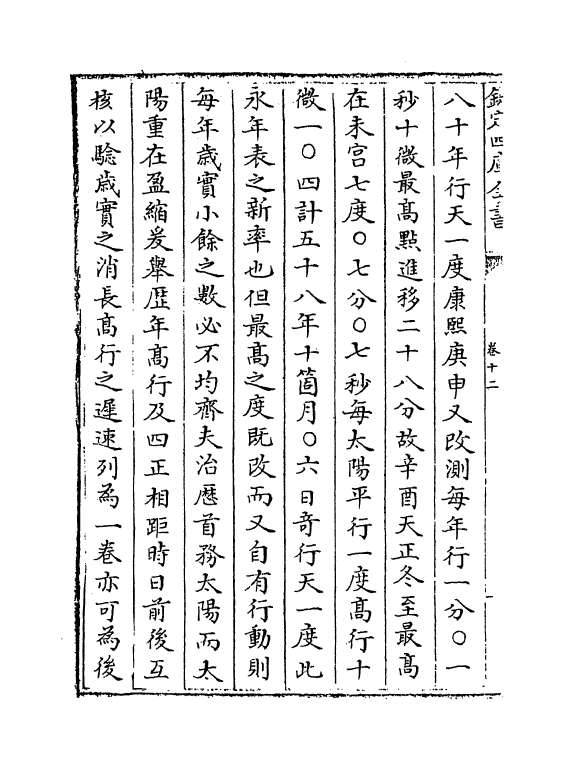 欽定四庫全書
卷十二
八十年行天一度康熙庚申又改測每年行一分〇一
秒十微最髙點進移二十八分故辛酉天正冬至最髙
在未宫七度〇七分〇七秒每太陽平行一度髙行十
微一〇四計五十八年十箇月〇六日竒行天一度此
永年表之新率也但最髙之度既改而又自有行動則
每年歲實小餘之數必不均齊夫治厯首務太陽而太
陽重在盈縮爰舉歴年髙行及四正相距時日前後互
核以驗歲實之消長髙行之遲速列為一卷亦可為後